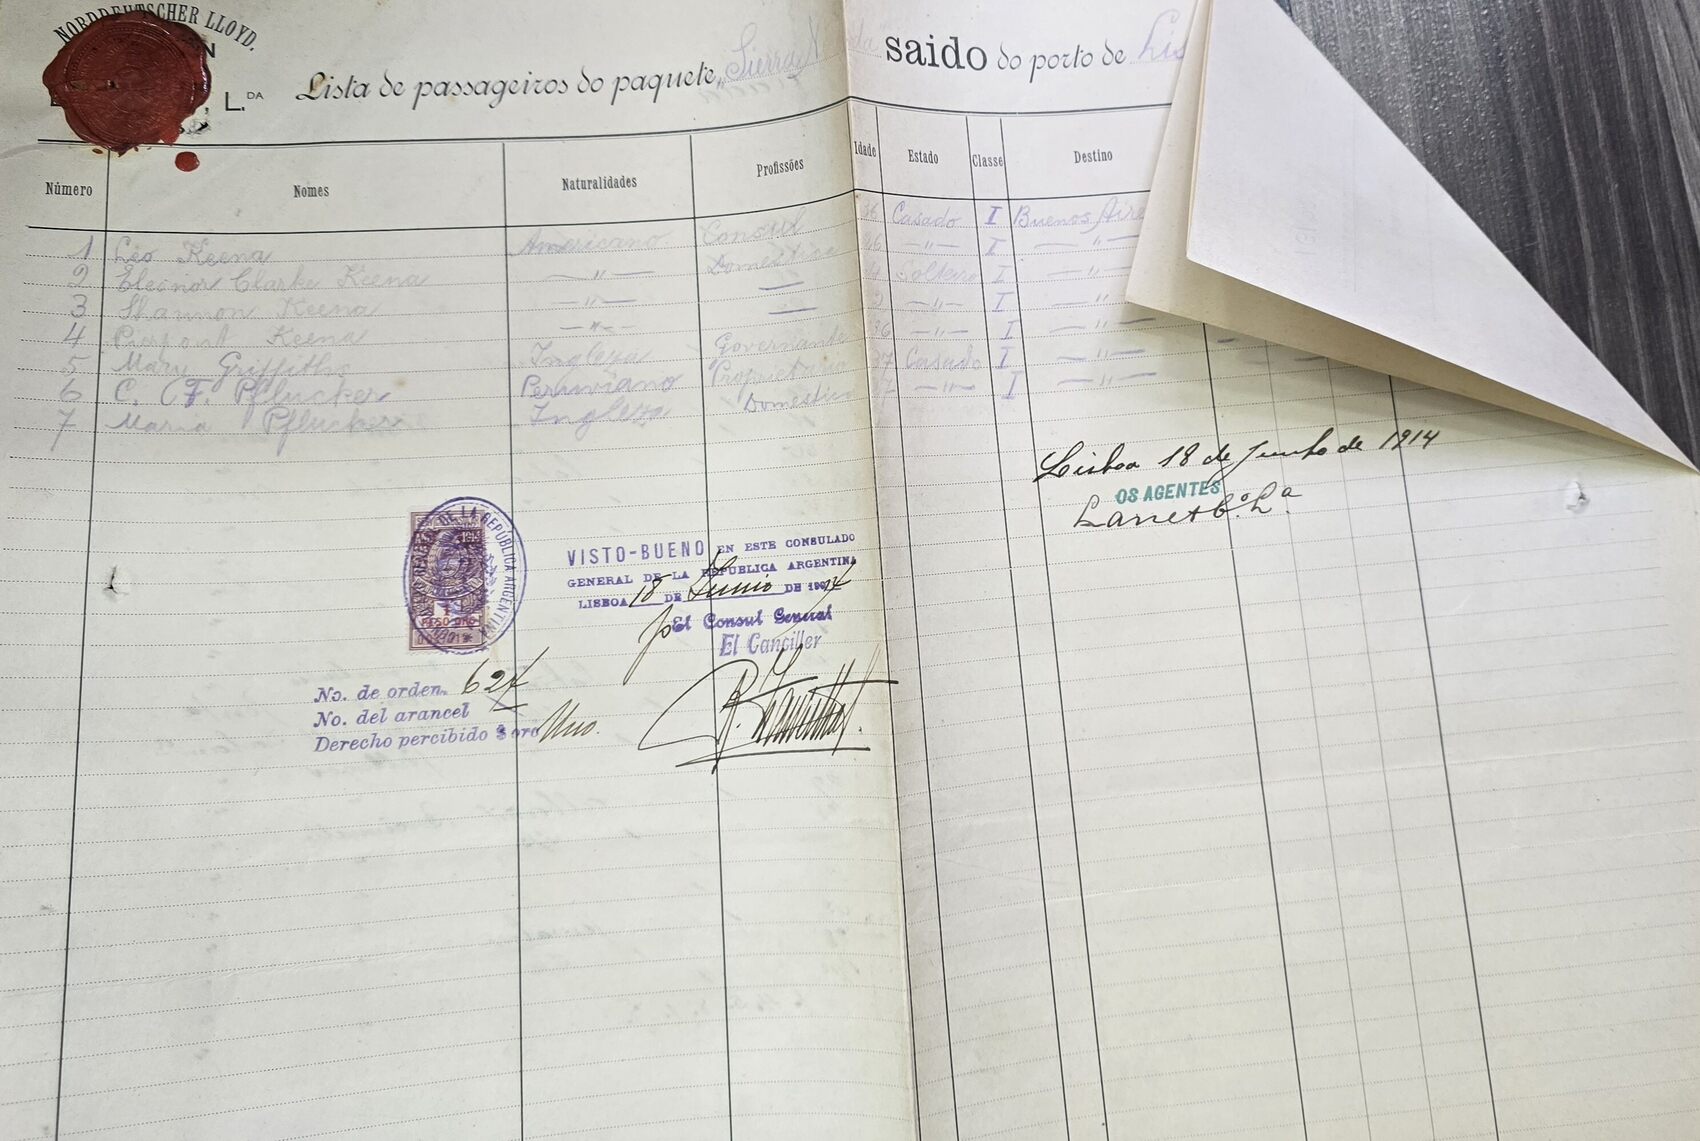 NORDDEUTSCHER LLOYD.
L.DA
Lista de passageiros do paquete „Sierra saido do porto de Lis
Número Nomes Naturalidades Profissões Idade Estado Classe Destino
1 Leo Keena Americano Consul 36 Casado I Buenos Aire
2 Eleanor Clarke Keena —"— Domestica 36 —"— I —"—
3 Shannon Keena —"— — Solteiro I —"—
4 Keena —"— — —"— I —"—
5 Mary Griffiths Ingleza Governante 36 —"— I —"—
6 C. F. Pflucker Peruviano Proprietario 37 Casado I —"—
7 Maria Pflucker Ingleza Domestica —"— I —"—
Lisboa 18 de Junho de 1914
OS AGENTES
DE LA REPÚBLICA ARGENTINA
PESO ORO
VISTO-BUENO EN ESTE CONSULADO
GENERAL DE LA REPUBLICA ARGENTINA
LISBOA 18 DE Junio DE 1914
El Consul General
El Canciller
No. de orden. 627
No. del arancel
Derecho percibido $ oro Uno.